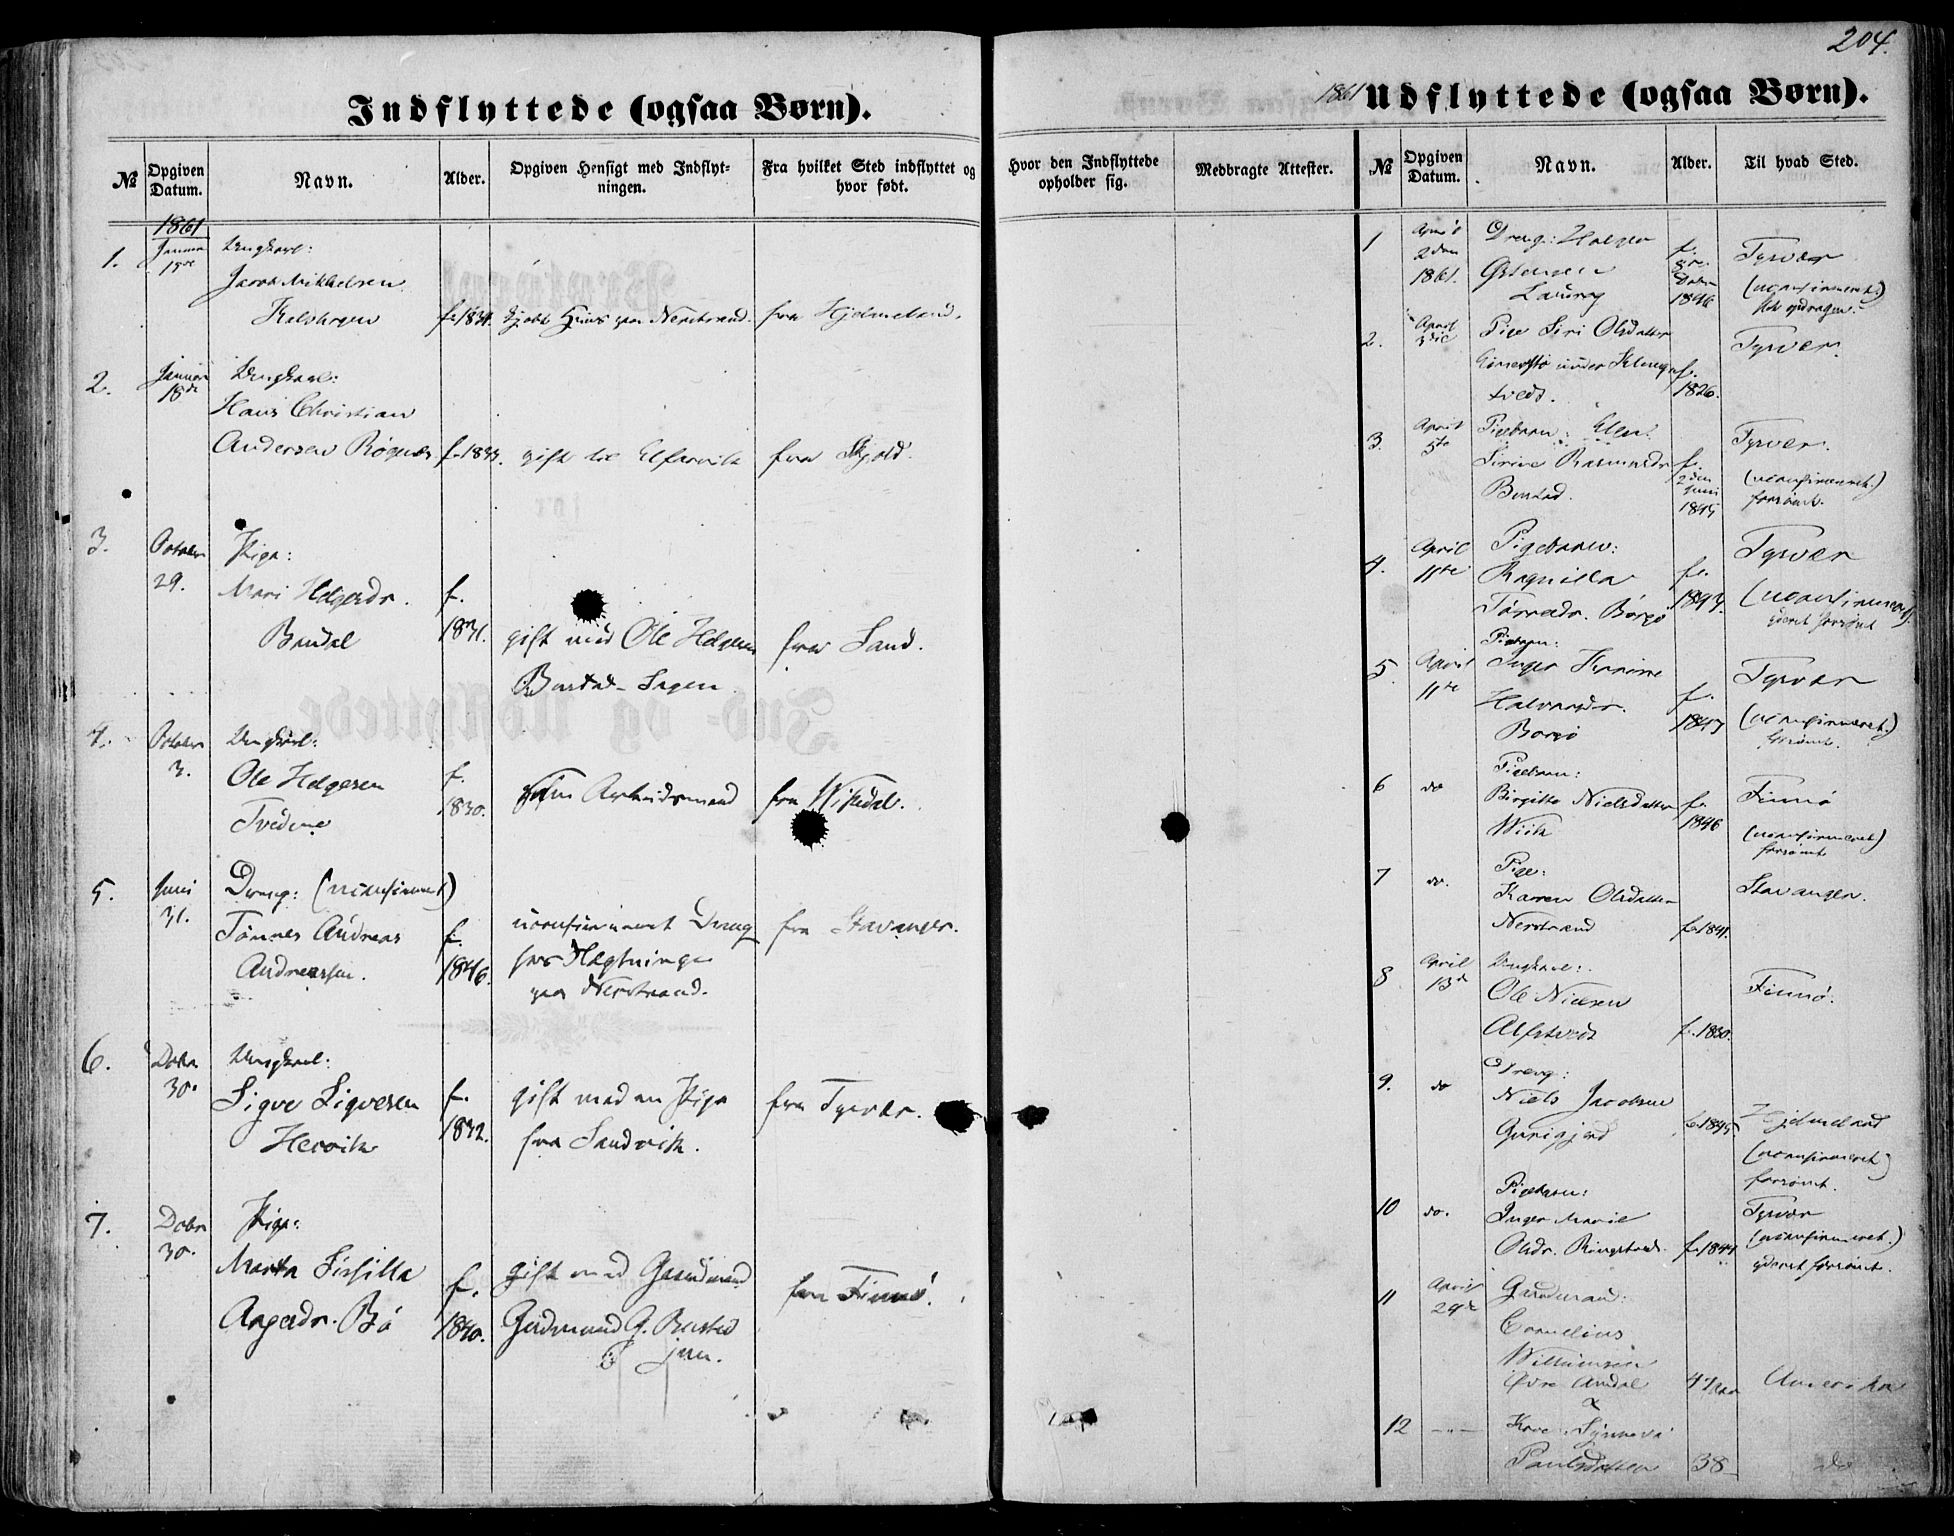 204.
Indflyttede (ogsaa Børn).
№
Opgiven Datum.
Navn.
Alder.
Opgiven Hensigt med Indflyt-
ningen.
Fra hvilket Sted indflyttet og
hvor født.
Hvor den Indflyttede
opholder sig.
Medbragte Attester.
1861
1.
Ungkarl:
Jacob Mikkelsen
f. 1834.
paa Nerstrand.
fra Hjelmeland.
2.
Januar
18de
Ungkarl:
Hans Christian
Andersen
gift til
fra Skjold.
3.
October
29.
Pige:
Mari Helgesdr.
f.
1831.
gift med Ole Helgesen
fra Sand.
4.
October
3.
Ungkarl:
Ole Helgesen
f.
1830.
som Arbeidsmand
fra Vikedal.
5.
Juni
31.
Dreng: (uconfirmeret)
Tønnes Andreas
Andreassen.
f.
1846.
uconfirmeret Dreng
hos
paa Nerstrand.
fra Stavanger.
6.
Decbr
30.
Ungkarl:
Sigve Sigvesen
Hervik
f.
1832.
gift med en Pige
fra Sandvik.
fra Tysvær.
7.
Decbr
30.
Pige:
Marta Sissilla
Aagesdr. Bø
f.
1840.
gift med Gaardmand
Gudmund G. Bustad
fra Finnø.
1861 Udflyttede (ogsaa Børn).
№
Opgiven Datum.
Navn.
Alder.
Til hvad Sted.
1
April
2den
1861.
Dreng: Helge
Østensen
1846
Tysvær
(uconfirmeret)
2.
April
3die
Pige Siri Olsdatter
f.
1826.
Tysvær.
3.
April
5te
Pigebarn: Elen
Sirine Rasmusdr
f.
2den
Juni
1845
Tysvær.
(uconfirmeret.)
forsømt.
4.
April
11te
Pigebarn:
Ragnilla
f.
Tysvær
(uconfirmeret)
yderst forsømt
5
April
11te
Pigebarn:
Inger
Halvorsdr.
Borgø
f.
Tysvær
(uconfirmeret.)
forsømt.
6
do
Pigebarn:
Birgitte Nielsdatter
f.
1846
Finnø
(uconfirmeret)
forsømt
7
do.
Pige:
Karen Olsdatter
Nerstrand
f. 1841.
Stavanger.
8
April
13de
Ungkarl:
Ole Nielsen
f. 1830.
Finnø.
9.
do
Dreng:
Niels Jacobsen
f. 1845
Hjelmeland
(uconfirmeret)
forsømt.
10
do.
Pigebarn:
Inger Marie
Olsdr.
Tysvær
(uconfirmeret.)
yderst forsømt.
11
April
29de
Gaardmand:
Cornelius
Willumsen
Øvre
47 Aar
Amerika
12
Kone Synneva
Paulsdatter
38
do